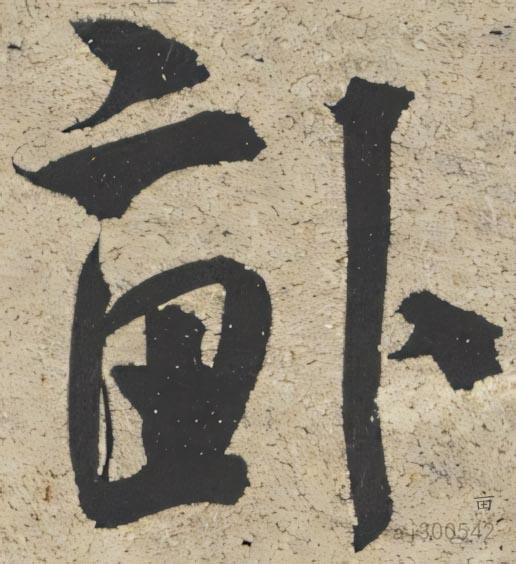 亩
亩
aj300542